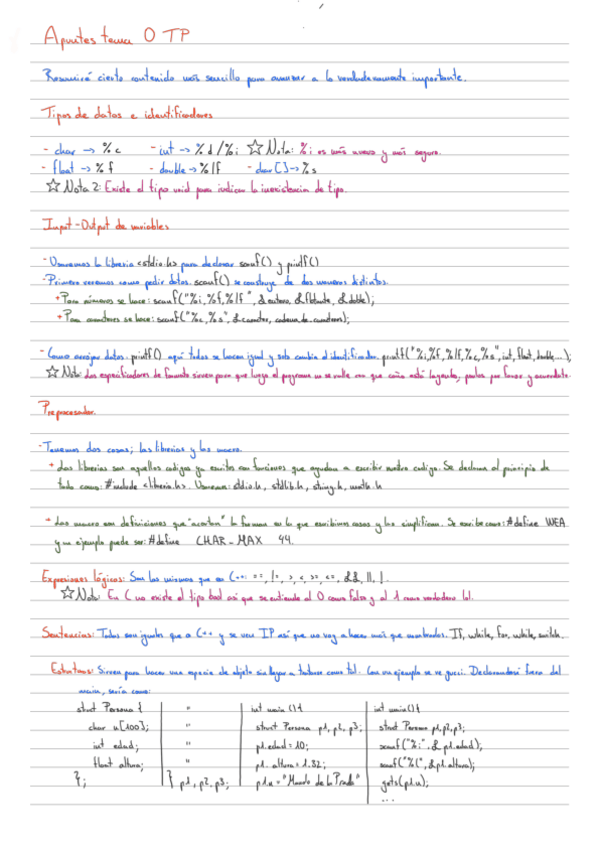 Apuntes tema 0 TP
Resumiré cierto contenido más sencillo para avanzar a lo verdaderamente importante.
Tipos de datos e identificadores
- char → %c - int → %d/%i ☆ Nota: %i es más nuevo y más seguro.
- float → %f - double → %lf - char[] → %s
☆ Nota 2: Existe el tipo void para indicar la inexistencia de tipo.
Input-Output de variables
- Usaremos la librería <stdio.h> para declarar scanf() y printf()
- Primero veremos como pedir datos. scanf() se construye de dos maneras distintas.
+ Para números se hace: scanf("%i,%f,%lf", &entero, &flotante, &doble);
+ Para caracteres se hace: scanf("%c,%s", &caracter, cadena_de_caracteres);
- Como arrojar datos. printf() aquí todos se hacen igual y solo cambia el identificador. printf("%i,%f,%lf,%c,%s", int, float, double,...);
☆ Nota: Los especificadores de formato sirven para que luego el programa no se ralle con que coño está leyendo, ponlos por favor y acuerdate.
Preprocesador.
- Tenemos dos cosas; las librerías y los macro.
+ Las librerías son aquellos codigos ya escritos con funciones que ayudan a escribir nuestro codigo. Se declaran al principio de
todo como: #include <libreria.h>. Usaremos: stdio.h, stdlib.h, string.h, math.h
+ Los macro son definiciones que "acortan" la forma en la que escribimos cosas y las simplifican. Se escribe como: #define WEA
y un ejemplo puede ser: #define CHAR_MAX 44.
Expresiones lógicas: Son las mismas que en C++: ==, !=, >, <, >=, <=, &&, ||, !.
☆ Nota: En C no existe el tipo bool así que se entiende al 0 como falso y al 1 como verdadero lol.
Sentencias: Todas son iguales que a C++ y se ven IP así que no voy a hacer más que nombrarlas. If, while, for, while, switch.
Estructuras: Sirven para hacer una especie de objeto sin llegar a tratarse como tal. Con un ejemplo se ve gucci. Declarandose fuera del
main, sería como:
struct Persona { " int main(){ int main(){
char n[100]; " struct Persona p1, p2, p3; struct Persona p1,p2,p3;
int edad; " p1.edad = 10; scanf("%i", &p1.edad);
float altura; " p1.altura = 1.82; scanf("%f", &p1.altura);
}; } p1, p2, p3; p1.n = "Manolo de la Prada" gets(p1.n);
...